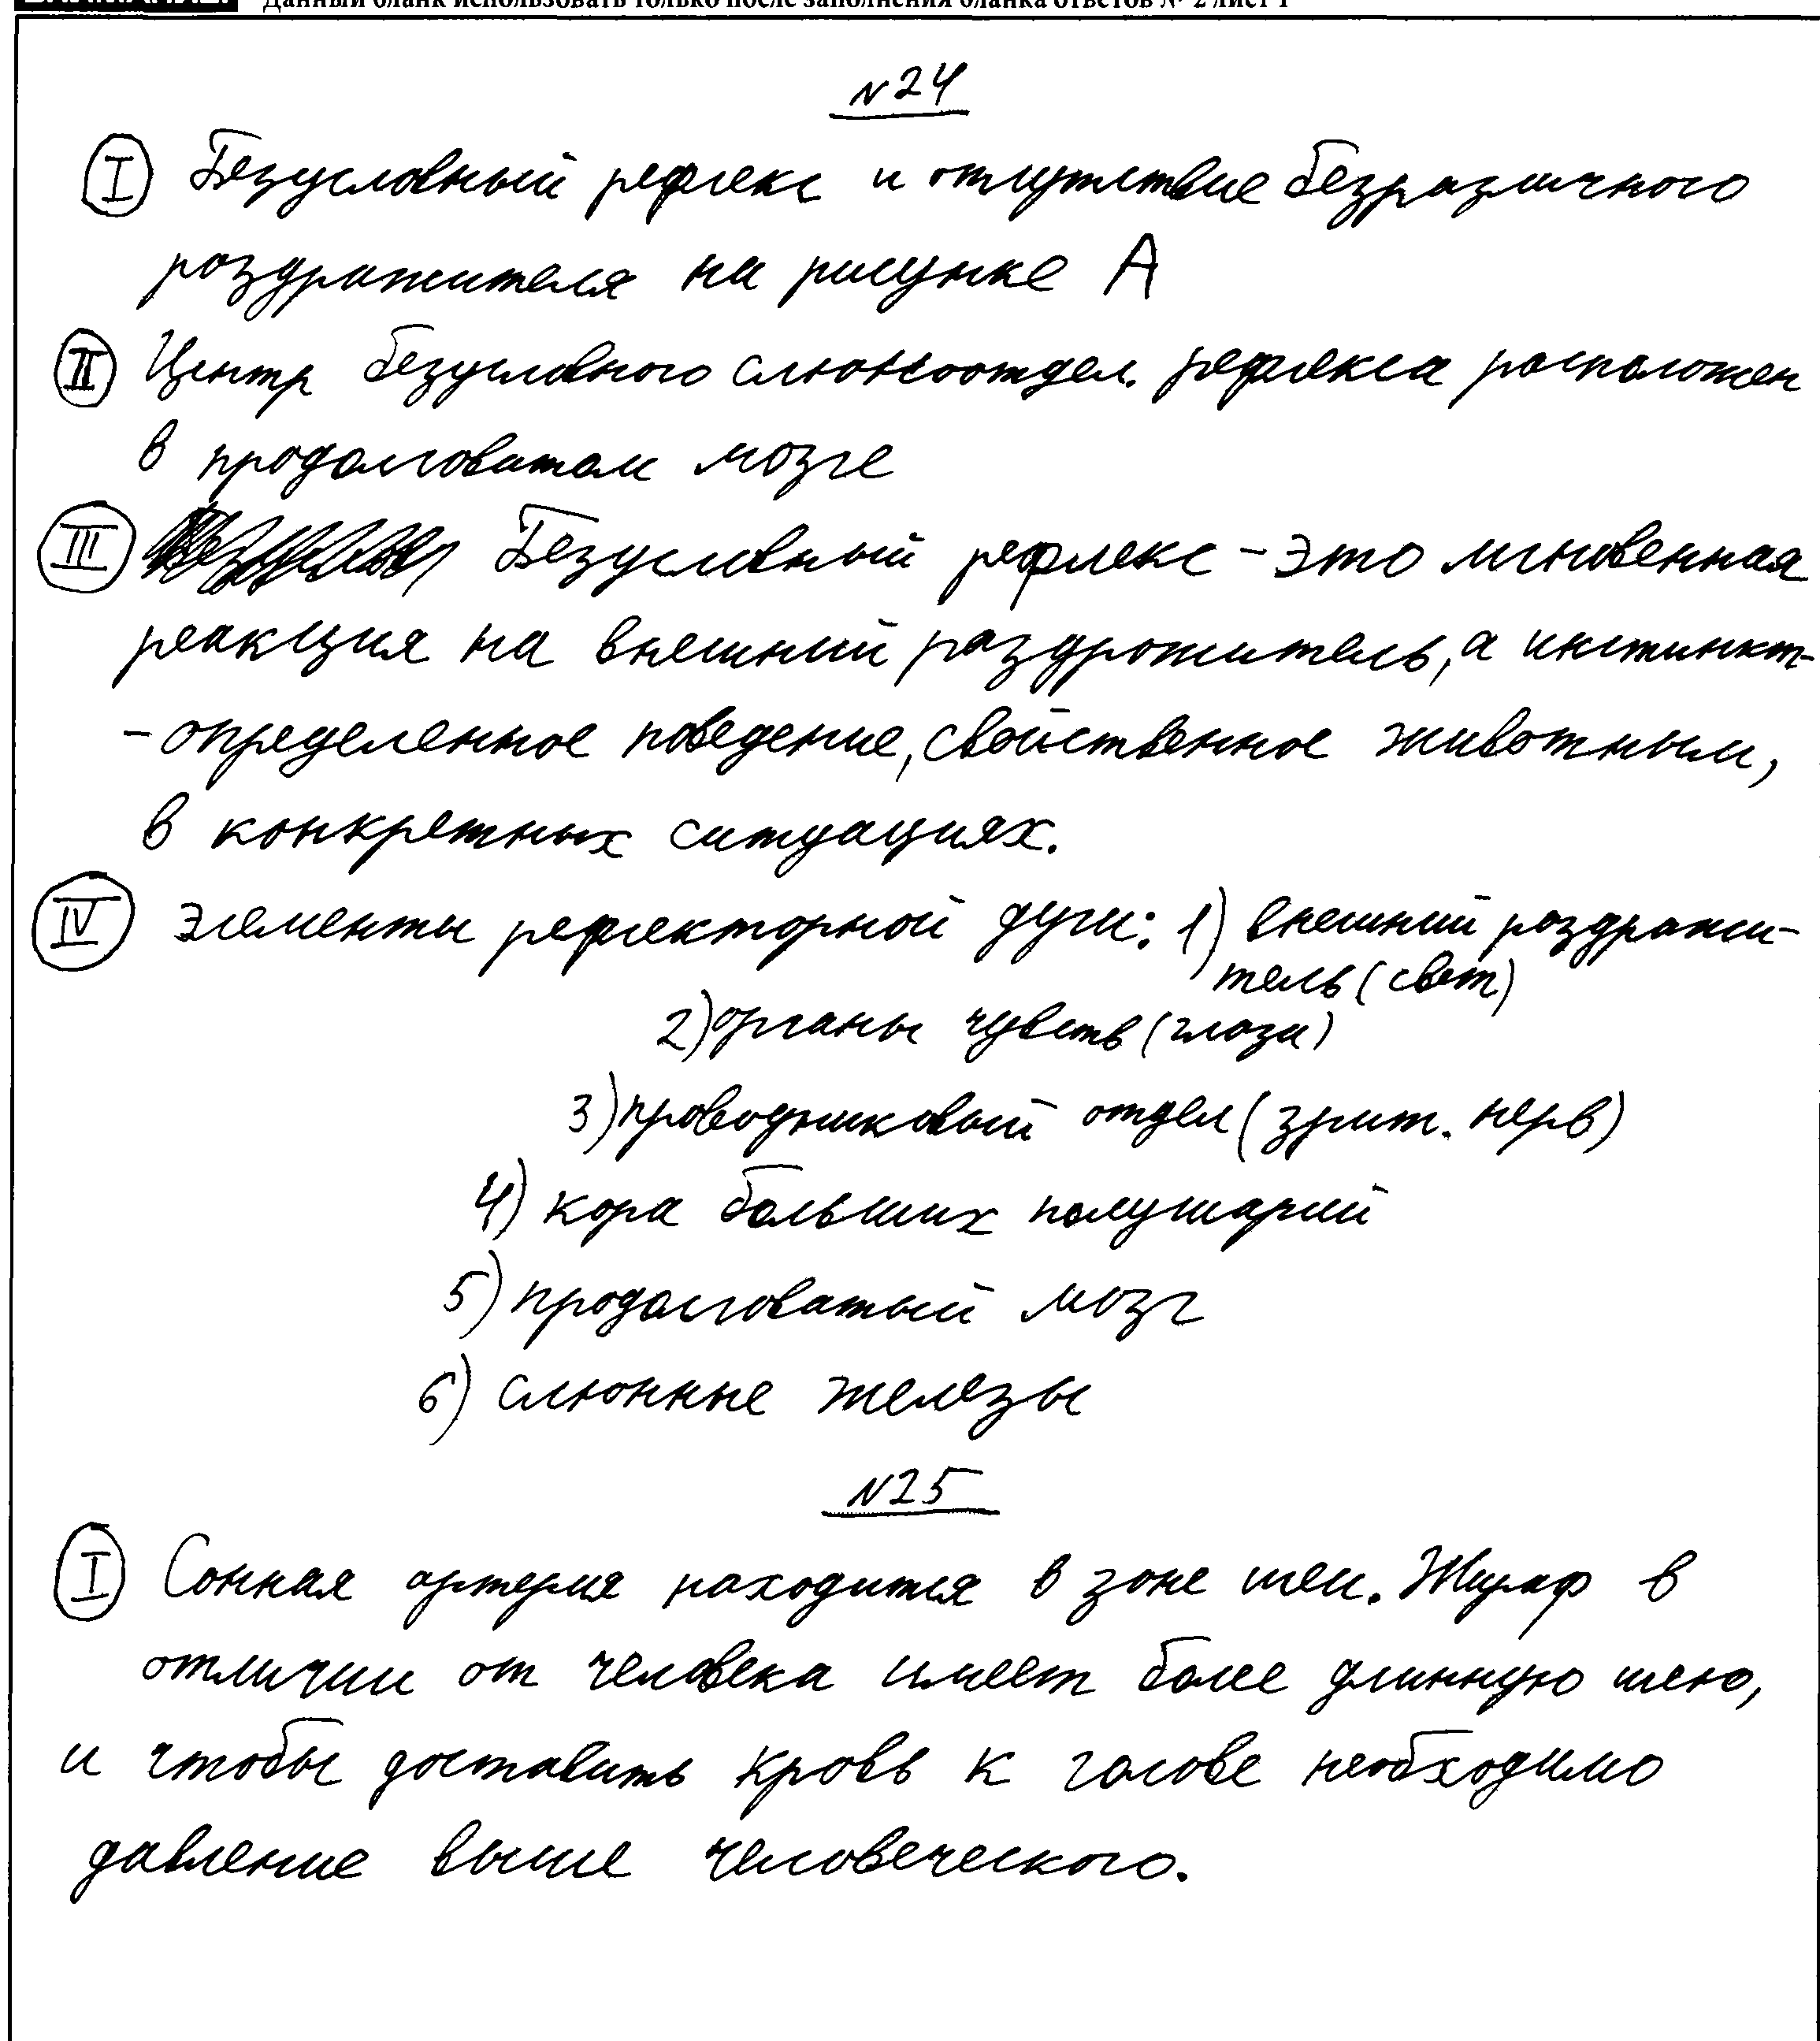 Данный бланк использовать только после заполнения бланка ответов № 2 лист 1
№24
I Безусловный рефлекс и отсутствие безразличного
роздражителя на рисунке А
II Центр безусловного слюноотдел. рефлекса расположен
в продолговатом мозге
III Безусловный рефлекс - это мгновенная
реакция на внешний раздрожитель, а инстинкт-
- определенное поведение, свойственное животным,
в конкретных ситуациях.
IV Элементы рефлекторной дуги: 1) внешний роздражи-
тель (свет)
2) органы чувств (глаза)
3) проводниковый отдел (зрит. нерв)
4) кора больших полушарий
5) продолговатый мозг
6) слюнные железы
№25
I Сонная артерия находится в зоне шеи. Жираф в
отличии от человека имеет более длинную шею,
и чтобы доставить кровь к голове необходимо
давление выше человеческого.